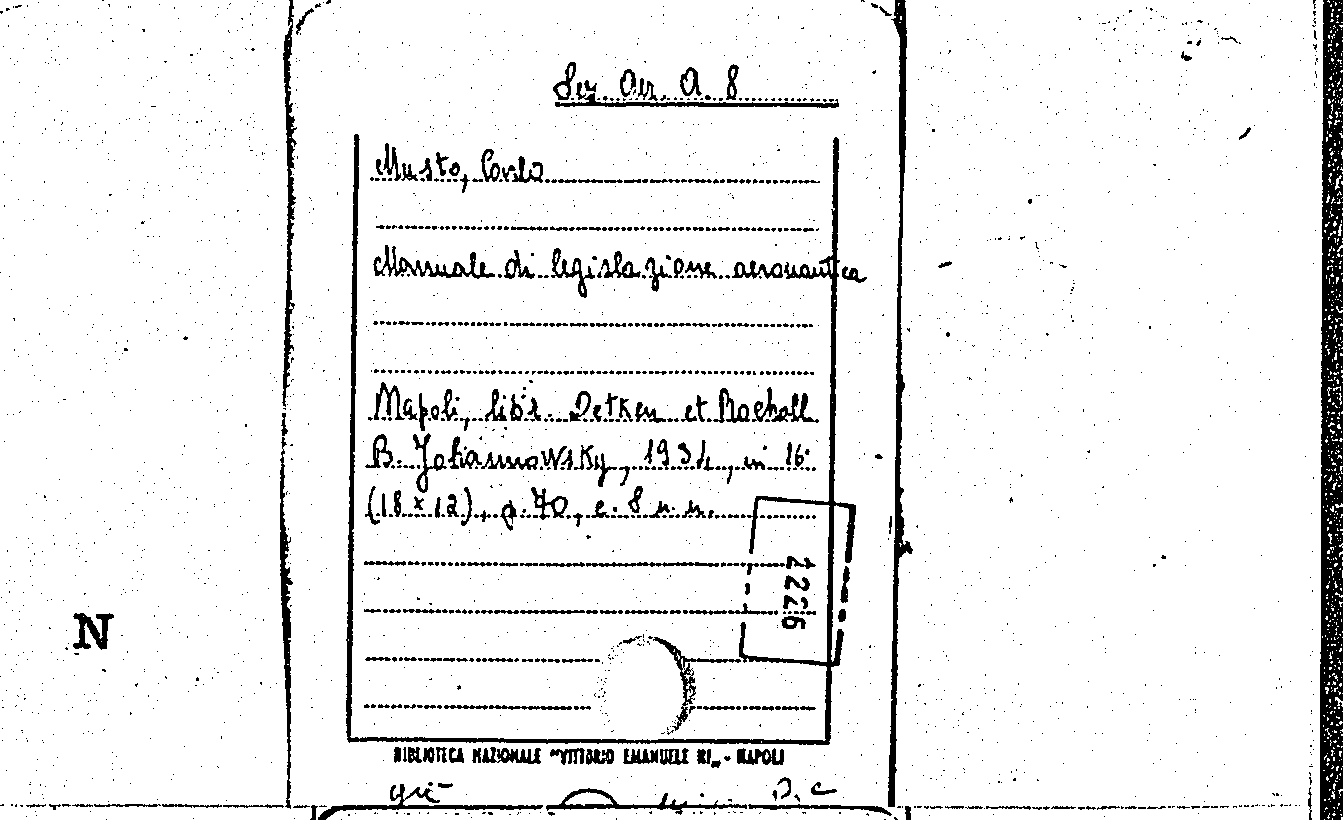 Sez. Aer. A. 8
Musto, Carlo
Manuale di legislazione aeronautica
Napoli, libr. Detken et Rocholl
B. Johannowsky, 1934, in 16°
(18 x 12), p. 70, c. 8 n. n.
2226
N
BIBLIOTECA NAZIONALE "VITTORIO EMANUELE III" - NAPOLI